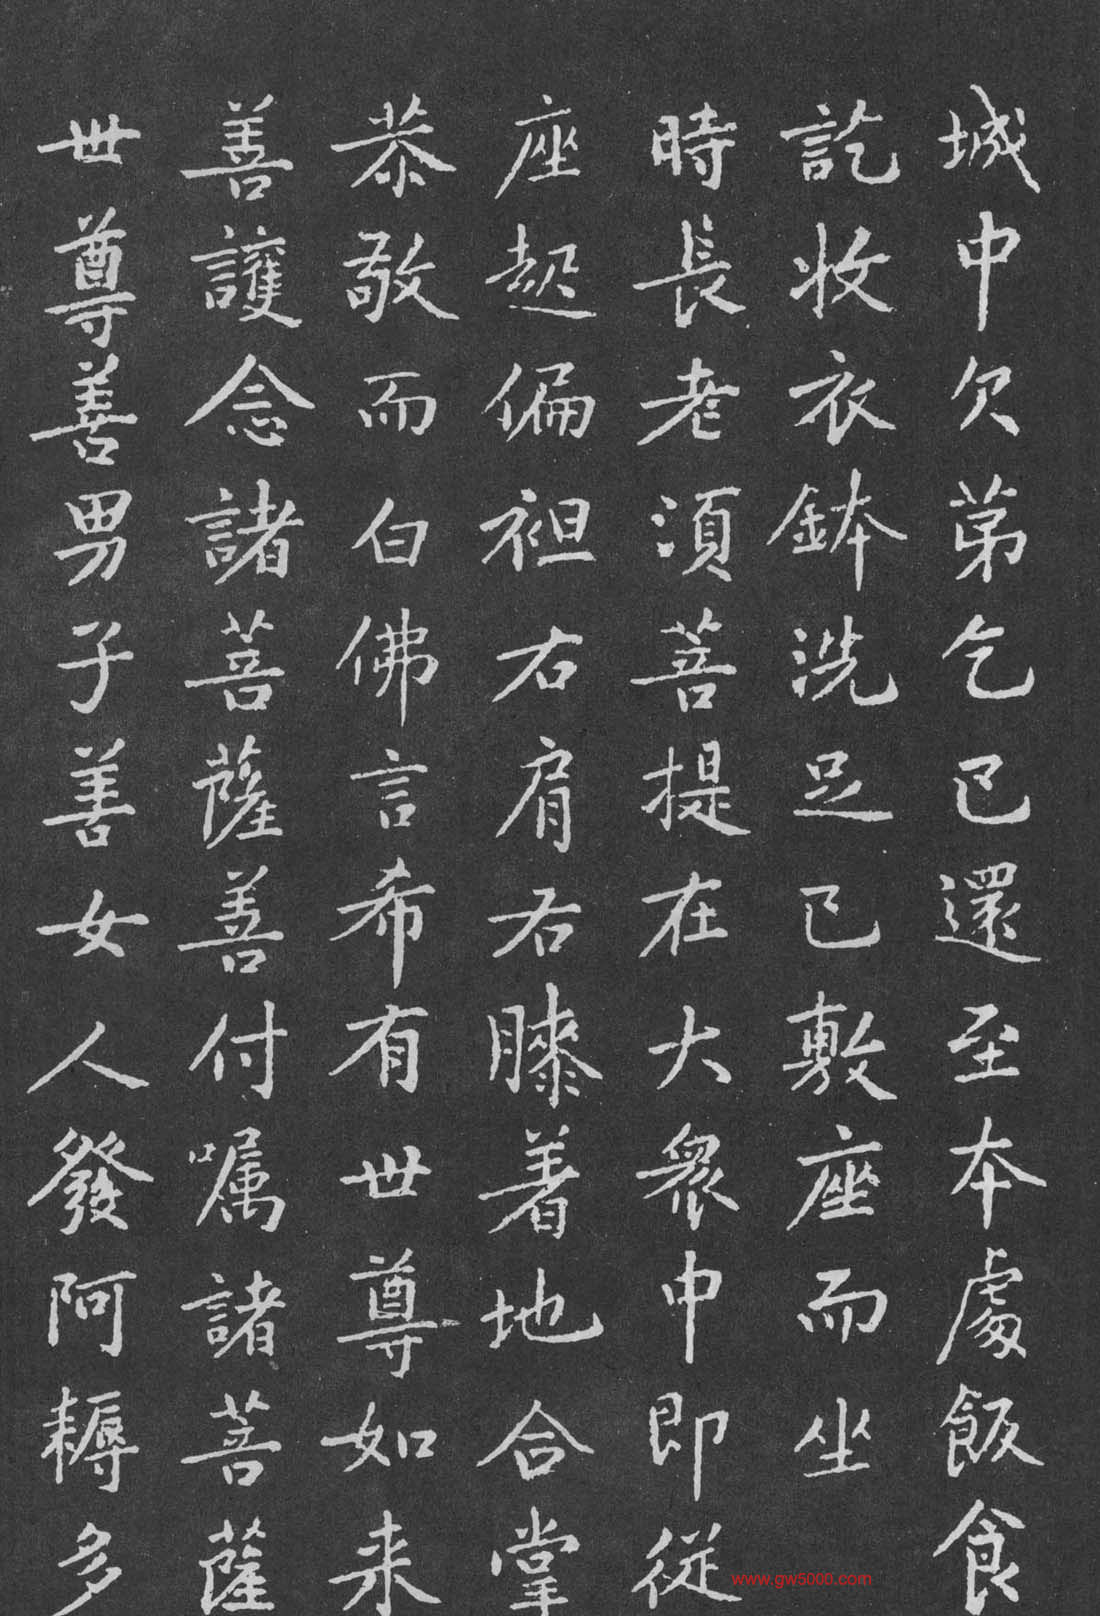 城中欠苐乞已還至本處飯食
訖收衣鉢洗足已敷座而坐
時長老湏菩提在大衆中即從
座起偏袒右肩右膝着地合掌
恭敬而白佛言希有世尊如来
善護念諸菩薩善付嘱諸菩薩
世尊善男子善女人發阿耨多
www.gw5000.com